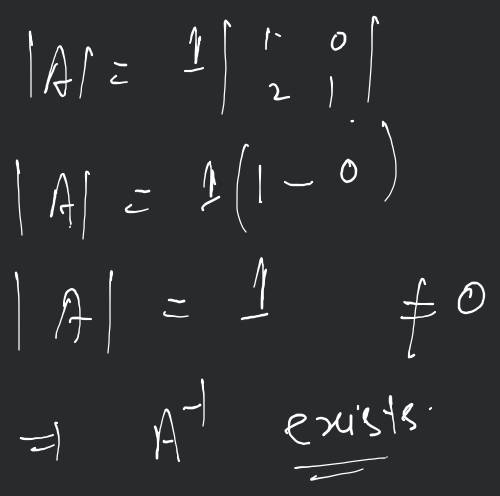 |A| = 1 | 1 0
2 1 |
|A| = 1(1 - 0)
|A| = 1 ≠ 0
⇒ A⁻¹ exists.